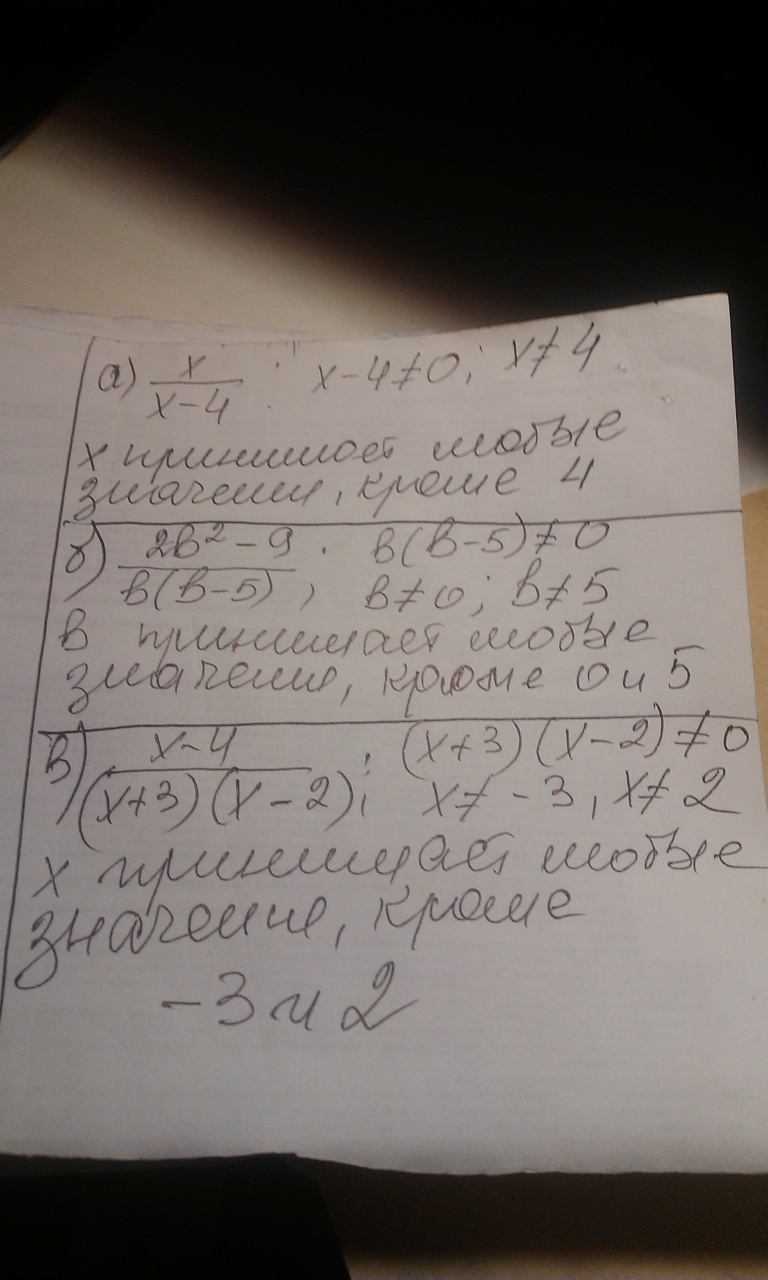 а) x/(x-4) ; x-4≠0; x≠4
x принимает любые
значения, кроме 4
б) (2в²-9)/(в(в-5)) ; в(в-5)≠0
в≠0; в≠5
в принимает любые
значения, кроме 0 и 5
в) (x-4)/((x+3)(x-2)) ; (x+3)(x-2)≠0
x≠-3, x≠2
x принимает любые
значение, кроме
-3 и 2